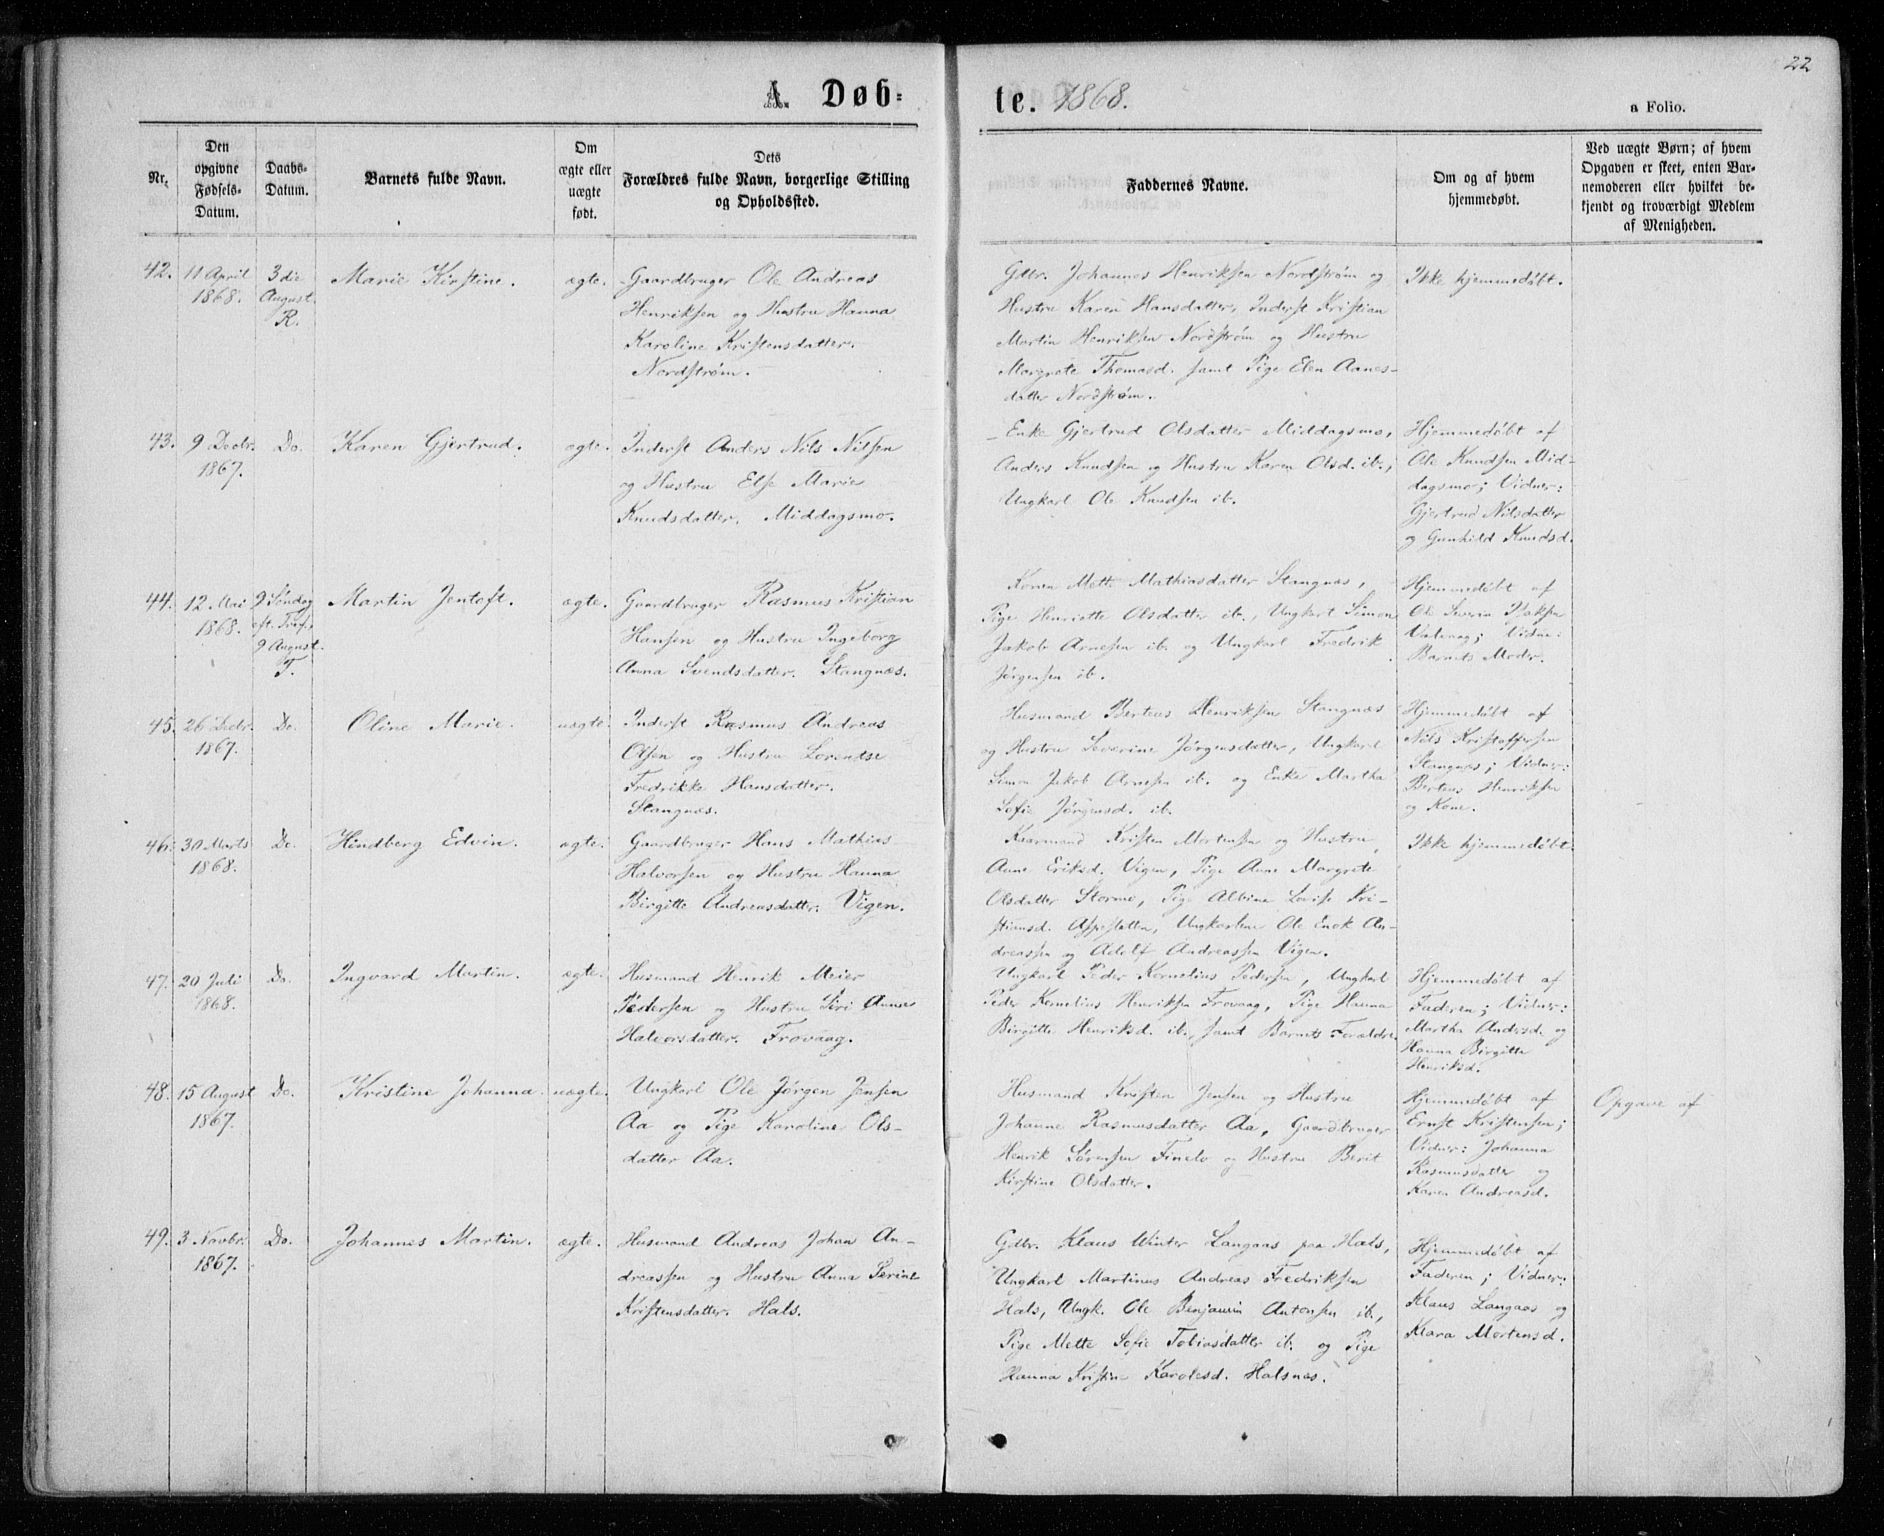 22
A. Døb=
te. 1868.
a Folio.
Nr.
Den
opgivne
Fødsels-
Datum.
Daabs-
Datum.
Barnets fulde Navn.
Om
ægte eller
uægte
født.
Dets
Forældres fulde Navn, borgerlige Stilling
og Opholdssted.
Faddernes Navne.
Om og af hvem
hjemmedøbt.
Ved uægte Børn; af hvem
Opgaven er skeet, enten Bar-
nemoderen eller hvilket be-
kjendt og troværdigt Medlem
af Menigheden.
42.
11 April
1868.
3die
August.
R.
Marie Kirstine.
ægte.
Gaardbruger Ole Andreas
Henriksen og Hustru Hanna
Karoline Kristensdatter.
Nordstrøm.
Gdbr. Johannes Henriksen Nordstrøm og
Hustru Karen Hansdatter, Inderst Kristian
Martin Henriksen Nordstrøm og Hustru
Margrete Thomasd. samt Pige Elen Aanes-
datter Nordstrøm.
Ikke hjemmedøbt.
43.
9 Decbr.
1867.
Do.
Karen Gjertrud.
ægte.
Inderst Anders Nils Nilsen
og Hustru Else Marie
Knudsdatter. Middagsmo.
Enke Gjertrud Olsdatter Middagsmo,
Anders Knudsen og Hustru Karen Olsd. ib.,
Ungkarl Ole Knudsen ib.
Hjemmedøbt af
Ole Knudsen Mid-
dagsmo; Vidner:
Gjertrud Nilsdatter
og Gunhild Knudsd.
44.
12 Mai
1868.
9 Søndag
eft. Tref.
9 August.
T.
Martin Jentoft.
ægte.
Gaardbruger Rasmus Kristian
Hansen og Hustru Ingeborg
Anna Svendsdatter. Stangnæs.
Konen Mette Mathiasdatter Stangnæs,
Pige Henriette Olsdatter ib., Ungkarl Simon
Jakob Arnesen ib. og Ungkarl Fredrik
Jørgensen ib.
Hjemmedøbt af
Ole Severin Isaksen
Vidne:
Barnets Moder.
45.
26 Decbr.
1867.
Do.
Oline Marie.
uægte.
Inderst Rasmus Andreas
Olsen og Hustru Lorentse
Fredrikke Hansdatter.
Stangnæs.
Husmand Berteus Henriksen Stangnæs
og Hustru Severine Jørgensdatter, Ungkarl
Simon Jakob Arnesen ib. og Enke Martha
Sofie Jørgensd. ib.
Hjemmedøbt af
Nils Kristoffersen
Stangnæs; Vidner:
Berteus Henriksen
og Kone.
46.
30 Marts
1868.
Do.
Hindberg Edvin.
ægte.
Gaardbruger Hans Mathias
Halvorsen og Hustru Hanna
Birgitte Andreasdatter. Vigen.
Kaarmand Kristen Mortensen og Hustru
Anne Eriksd. Vigen, Pige Anne Margrete
Olsdatter Storme, Pige Albine Lovise Kri-
stiansd. Aspestøtten, Ungkarlene Ole Enok An-
dreassen og Adolf Andreassen Vigen.
Ikke hjemmedøbt.
47.
20 Juli
1868.
Do.
Ingvard Martin.
ægte.
Husmand Henrik Meier
Pedersen og Hustru Siri Anne
Halvorsdatter. Frovaag.
Ungkarl Peder Kornelius Pedersen, Ungkarl
Peder Kornelius Henriksen Frovaag, Pige Hanna
Birgitte Henriksd. ib., samt Barnets Forældre.
Hjemmedøbt af
Faderen; Vidner:
Martha Andersd. og
Hanna Birgitte
Henriksd.
48.
15 August
1867.
Do.
Kristine Johanna.
uægte.
Ungkarl Ole Jørgen Jensen
Aa og Pige Karoline Ols-
datter Aa.
Husmand Kristen Jensen og Hustru
Johanne Rasmusdatter Aa, Gaardbruger
Henrik Sørensen Finelv og Hustru Berit
Kirstine Olsdatter.
Hjemmedøbt af
Ernst Kristensen;
Vidner: Johanna
Rasmusdatter og
Karen Andreasd.
Opgave af
49.
3 Novbr.
1867.
Do.
Johannes Martin.
ægte.
Husmand Andreas Johan An-
dreassen og Hustru Anna Serine
Kristensdatter. Hals.
Gdbr. Klaus Winter Langaas paa Hals,
Ungkarl Martinus Andreas Fredriksen
Hals, Ungk. Ole Benjamin Antonsen ib.,
Pige Mette Sofie Tobiasdatter ib. og Pige
Hanna Kristine Karolesd. Halsnæs.
Hjemmedøbt af
Faderen; Vidner:
Klaus Langaas og
Klara Mortensd.